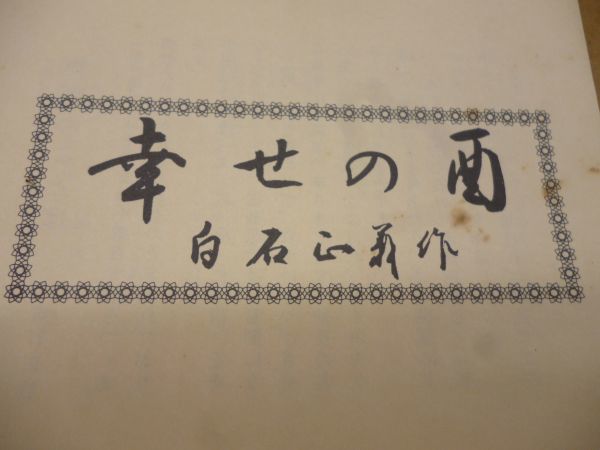 幸せの酉
白石正義作